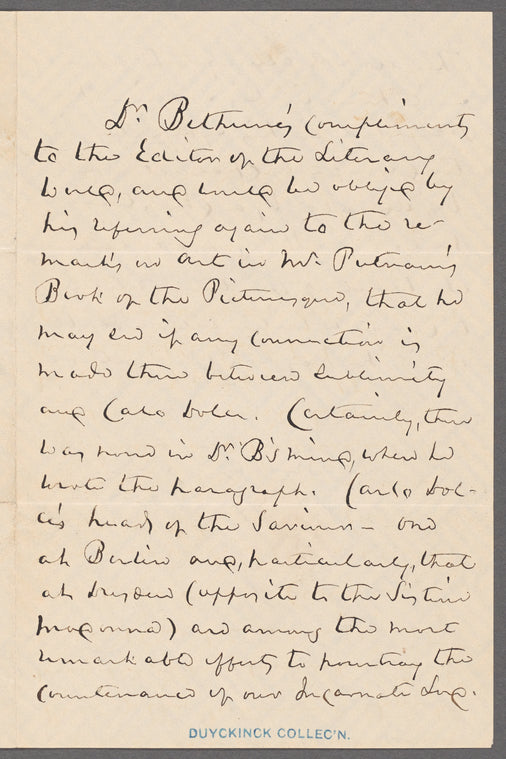 Dr. Bethune's compliments
to the Editor of the Literary
World, and would be obliged by
his referring again to the re-
marks on Art in Mr. Putnam's
Book of the Picturesque, that he
may see if any connection is
made there between sublimity
and Carlo Dolce. Certainly, there
was none in Dr. B's mind, when he
wrote the paragraph. Carlo Dol-
ce's heads of the Saviour – one
at Berlin and, particularly, that
at Dresden (opposite to the Sistine
Madonna) are among the most
remarkable efforts to pourtray the
countenance of our Incarnate God.
DUYCKINCK COLLEC'N.